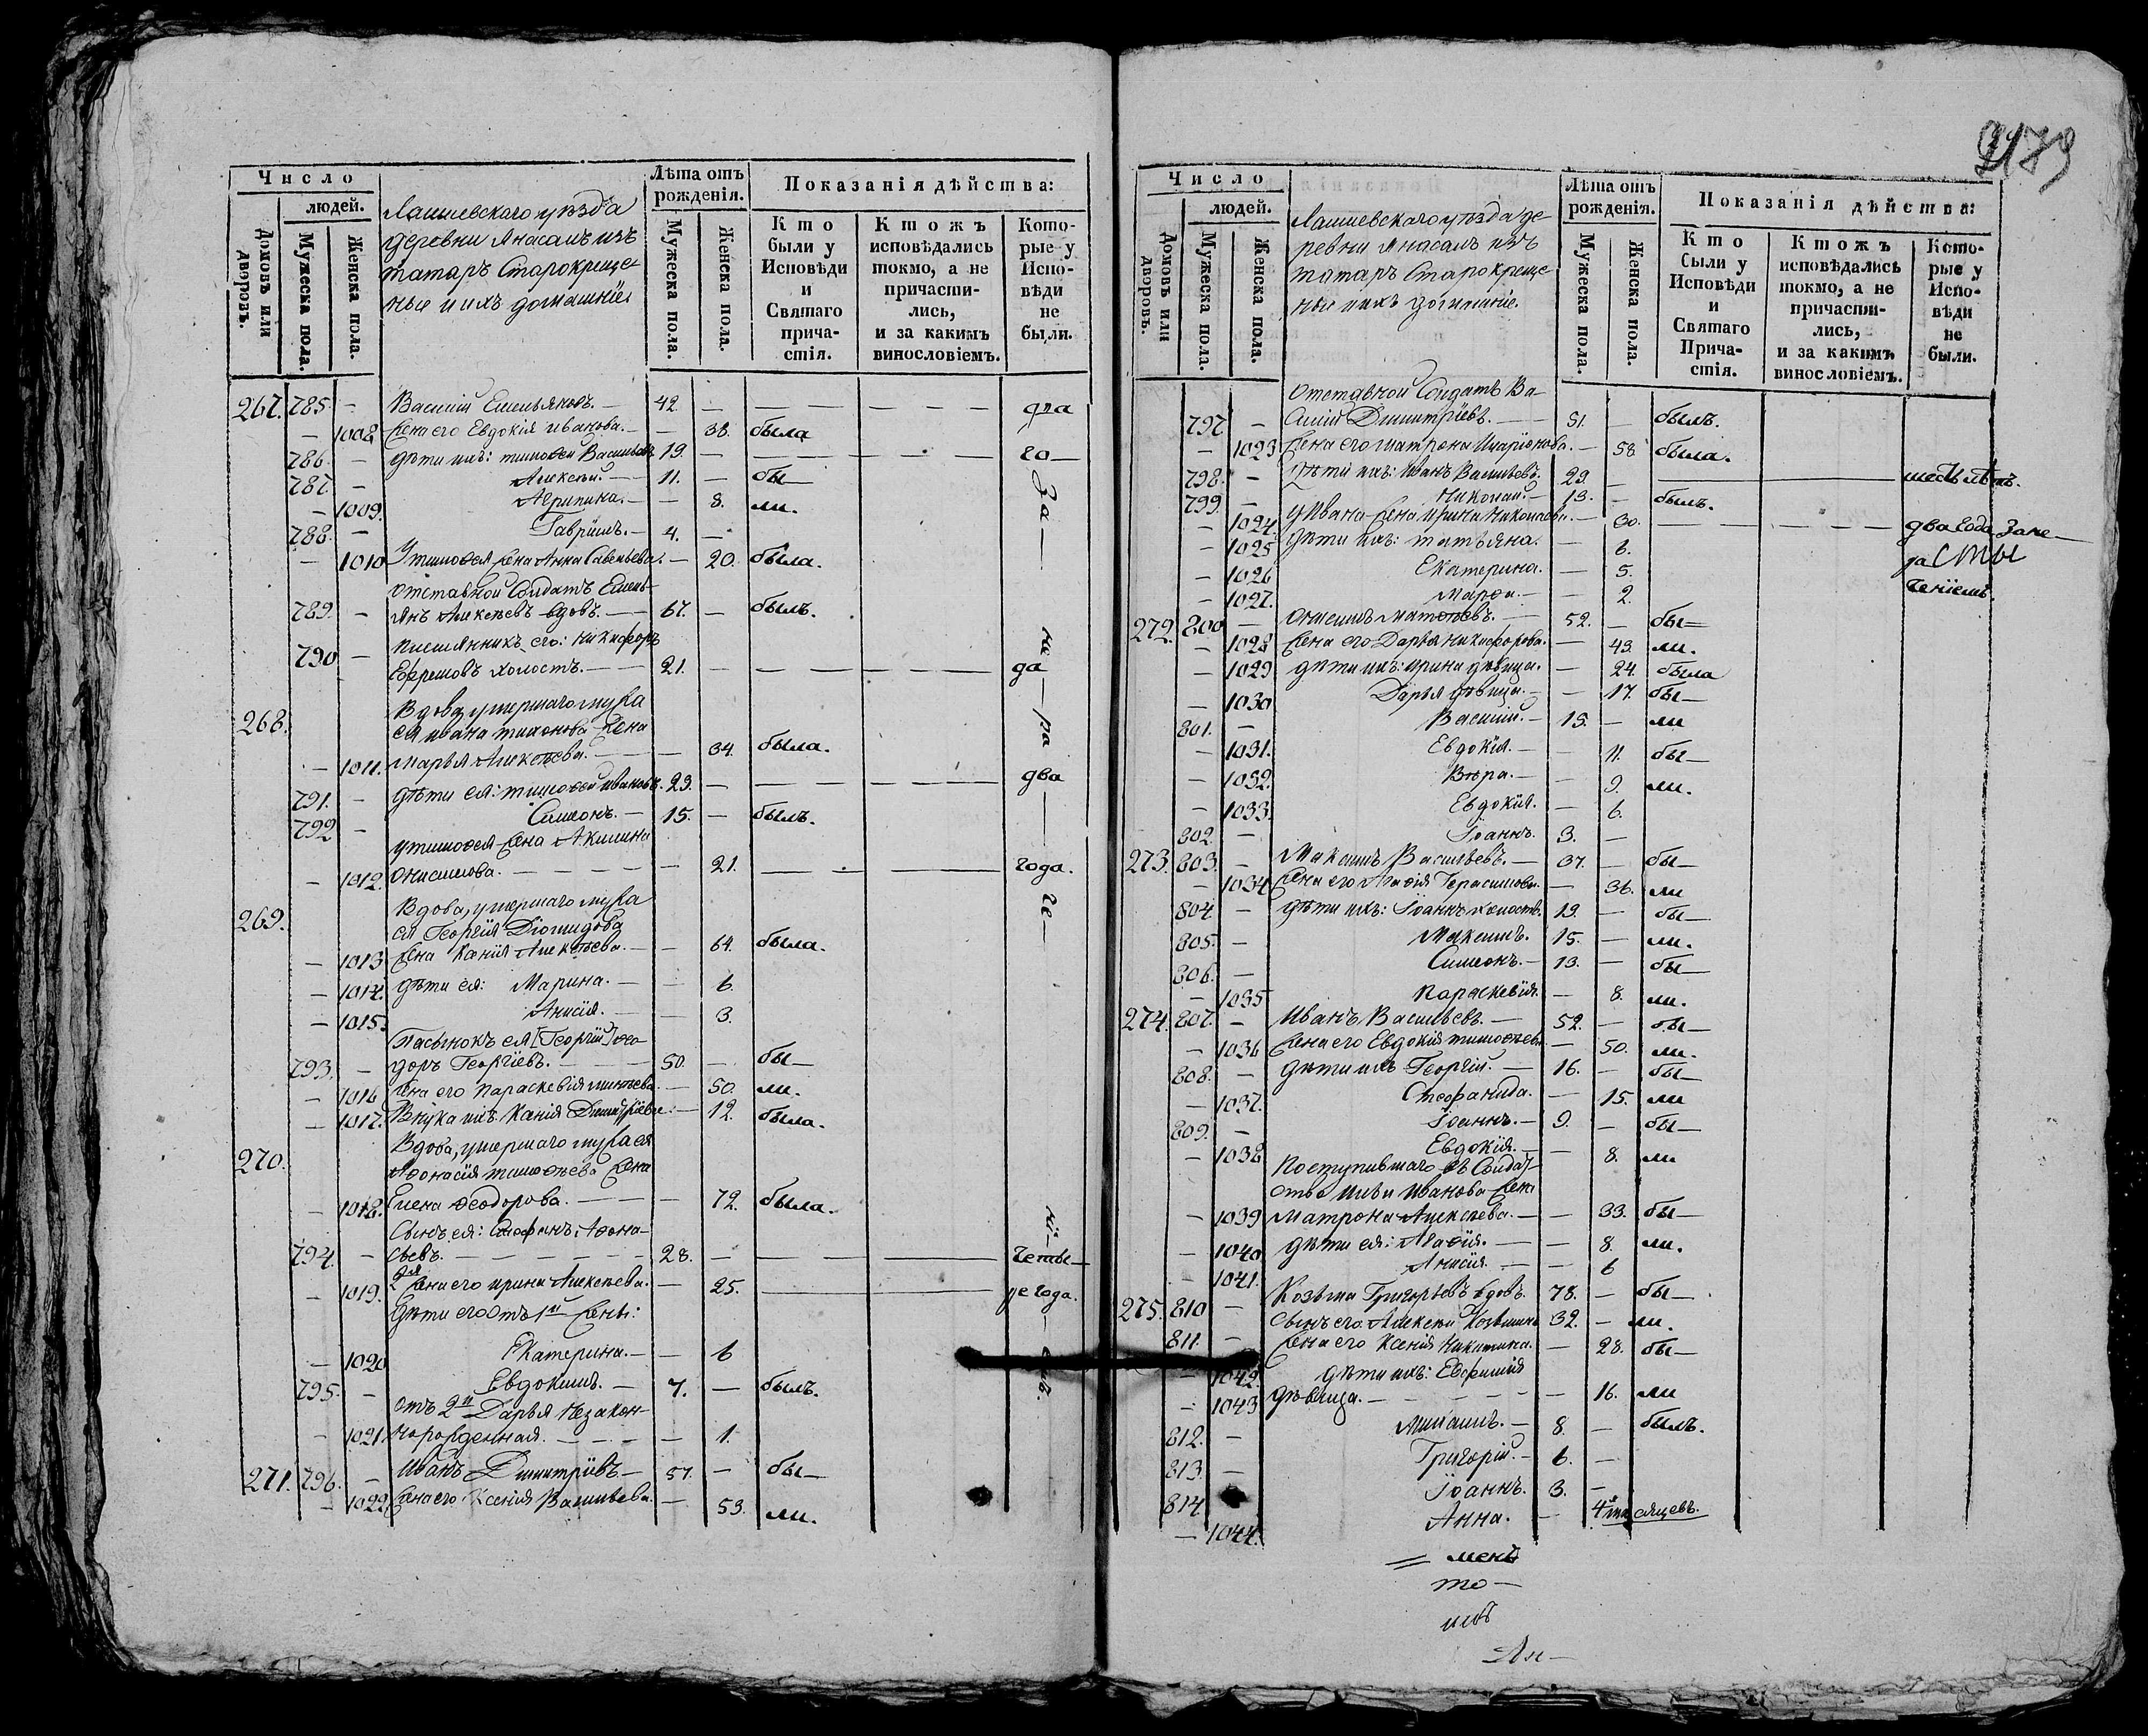 Число
людей.
Домовъ или дворовъ.
Мужеска пола.
Женска пола.
Лаишевскаго уѣзда
деревни Янасалъ изъ
татаръ Старокреще-
ные и ихъ домашніе
Лѣта отъ рожденія.
Мужеска пола.
Женска пола.
Показанія дѣйства:
Кто были у Исповѣди и Святаго причастія.
Ктожъ исповѣдались токмо, а не причастились, и за какимъ винословіемъ.
Которые у Исповѣди не были.
267. 785. — Василій Емельяновъ. — 42. — — два
— 1008. Жена его Евдокія Иванова. — — 38. была
786. — дѣти ихъ: Тимоѳей Васильевъ 19. — — го—
787. — Алексѣй. — 11. — бы—
— 1009. Агрипина. — — 8. ли.
788. — Гавріилъ. — 4. —
— 1010 У Тимоѳея жена Анна Савельева. — 20. была.
Отставной Солдатъ Емель-
789. — янъ Алексѣевъ вдовъ. — 67. — былъ.
790 — племянникъ его: Никифоръ
Ефремовъ холостъ. — 21. — — да
268. Вдова, умершаго мужа
ея Ивана Тихонова жена
— 1011. Марья Алексѣева. — — 34. была.
791. — дѣти ея: Тимоѳей Ивановъ. 23. — — два
792 — Симеонъ. — 15. — былъ.
у Тимоѳея жена Акилина
— 1012. Онисимова. — — 21. — года.
269. Вдова, умершаго мужа
ея Георгія Діомидова
— 1013 жена Ксенія Алексѣева. — — 64. была.
— 1014. дѣти ея: Марина. — — 6.
— 1015. Анисія. — — 3.
Пасынокъ ея [Георгій] Ѳео-
793. — доръ Георгіевъ. — 50. — бы—
— 1016 жена его Параскевія Минѣева. — 50. ли.
— 1017. Внука ихъ Ксенія Димитріева. — 12. была.
270. Вдова, умершаго мужа ея
Аѳонасія Тимоѳѣева жена
— 1018. Елена Ѳеодорова. — — 72. была.
Сынъ ея: Стефанъ Аѳона-
794. — сьевъ. — 28. — — четы—
— 1019. 2я жена его Ирина Алексѣева. — 25. — ре года.
Дѣти его отъ 1й жены:
— 1020 Екатерина. — — 6
795. — Евдокимъ. — 7. — былъ.
отъ 2й Дарья незакон-
— 1021. норожденная. — — 1.
271. 796. — Иванъ Димитріевъ — 57. — бы—
— 1022. Жена его Ксенія Васильева. — 53. ли.
За—
не
—ра
—
че—
ні—
емъ.
179
Число
людей.
Домовъ или дворовъ.
Мужеска пола.
Женска пола.
Лаишевскаго уѣзда де-
ревни Янасалъ изъ
татаръ Старокреще
ные и ихъ домашніе.
Лѣта отъ рожденія.
Мужеска пола.
Женска пола.
Показанія дѣйства:
Кто были у Исповѣди и Святаго Причастія.
Ктожъ исповѣдались токмо, а не причастились, и за какимъ винословіемъ.
Которые у Исповѣди не были.
Отставной Солдатъ Ва-
797. — силій Димитріевъ. — 51. — былъ.
— 1023 Жена его Матрона Иларіонова. — 58. была.
798. — Дѣти ихъ: Иванъ Васильевъ. 29. — — шесть лѣтъ.
799. — Николай. — 13. — былъ.
— 1024. у Ивана жена Ирина Николаева. — 30. — два года за не—
— 1025 дѣти ихъ: Татьяна. — 6. ра
— 1026 Екатерина. — 5.
— 1027. Марѳа. — — 2. ченіемъ.
272. 800 — Онисимъ Матѳѣевъ. — 52. — бы—
— 1028 Жена его Дарья Никифорова. — 43. ли.
— 1029 дѣти ихъ: Ирина дѣвица. — 24. была
— 1030 Дарья дѣвица. — — 17. бы—
801. — Василій. — 15. — ли
— 1031. Евдокія. — — 11. бы—
— 1032. Вѣра. — — 9. ли.
— 1033. Евдокія. — 6.
802. — Іоаннъ. 3. —
273. 803. — Максимъ Васильевъ. — 37. — бы—
— 1034 Жена его Агаѳія Герасимова. — 36. ли
804. — дѣти ихъ: Іоаннъ холостъ. 19. — бы—
805. — Максимъ. 15. — ли.
806. — Симеонъ. — 13. — бы—
— 1035 Параскевія. — 8. ли.
274. 807. — Иванъ Васильевъ. — 52. — бы—
— 1036 Жена его Евдокія Тимоѳѣева — 50. ли.
808. — дѣти ихъ Георгій. — 16. — бы—
— 1037. Стефанида. — 15. ли
809. — Іоаннъ. — 9. — бы—
— 1038 Евдокія. — — 8. ли
Поступившаго въ Солдат-
ство Иванова жена
— 1039 Матрона Алексѣева. — — 33. бы—
— 1040 дѣти ея: Агаѳія. — — 8. ли.
— 1041. Анисія. — — 6
275. 810 — Козьма Григорьевъ вдовъ. 78. — бы—
811. — Сынъ его Алексѣй Козьминъ 32. — ли.
— 1042. Жена его Ксенія Никитина. — 28. бы—
дѣти ихъ: Евфимія
— 1043 дѣвица. — — 16. ли
812. — Михаилъ. — 8. — былъ.
813. — Григорій. — 6. —
814. — Іоаннъ. 3. —
— 1044. Анна. — 4 мѣсяцевъ.